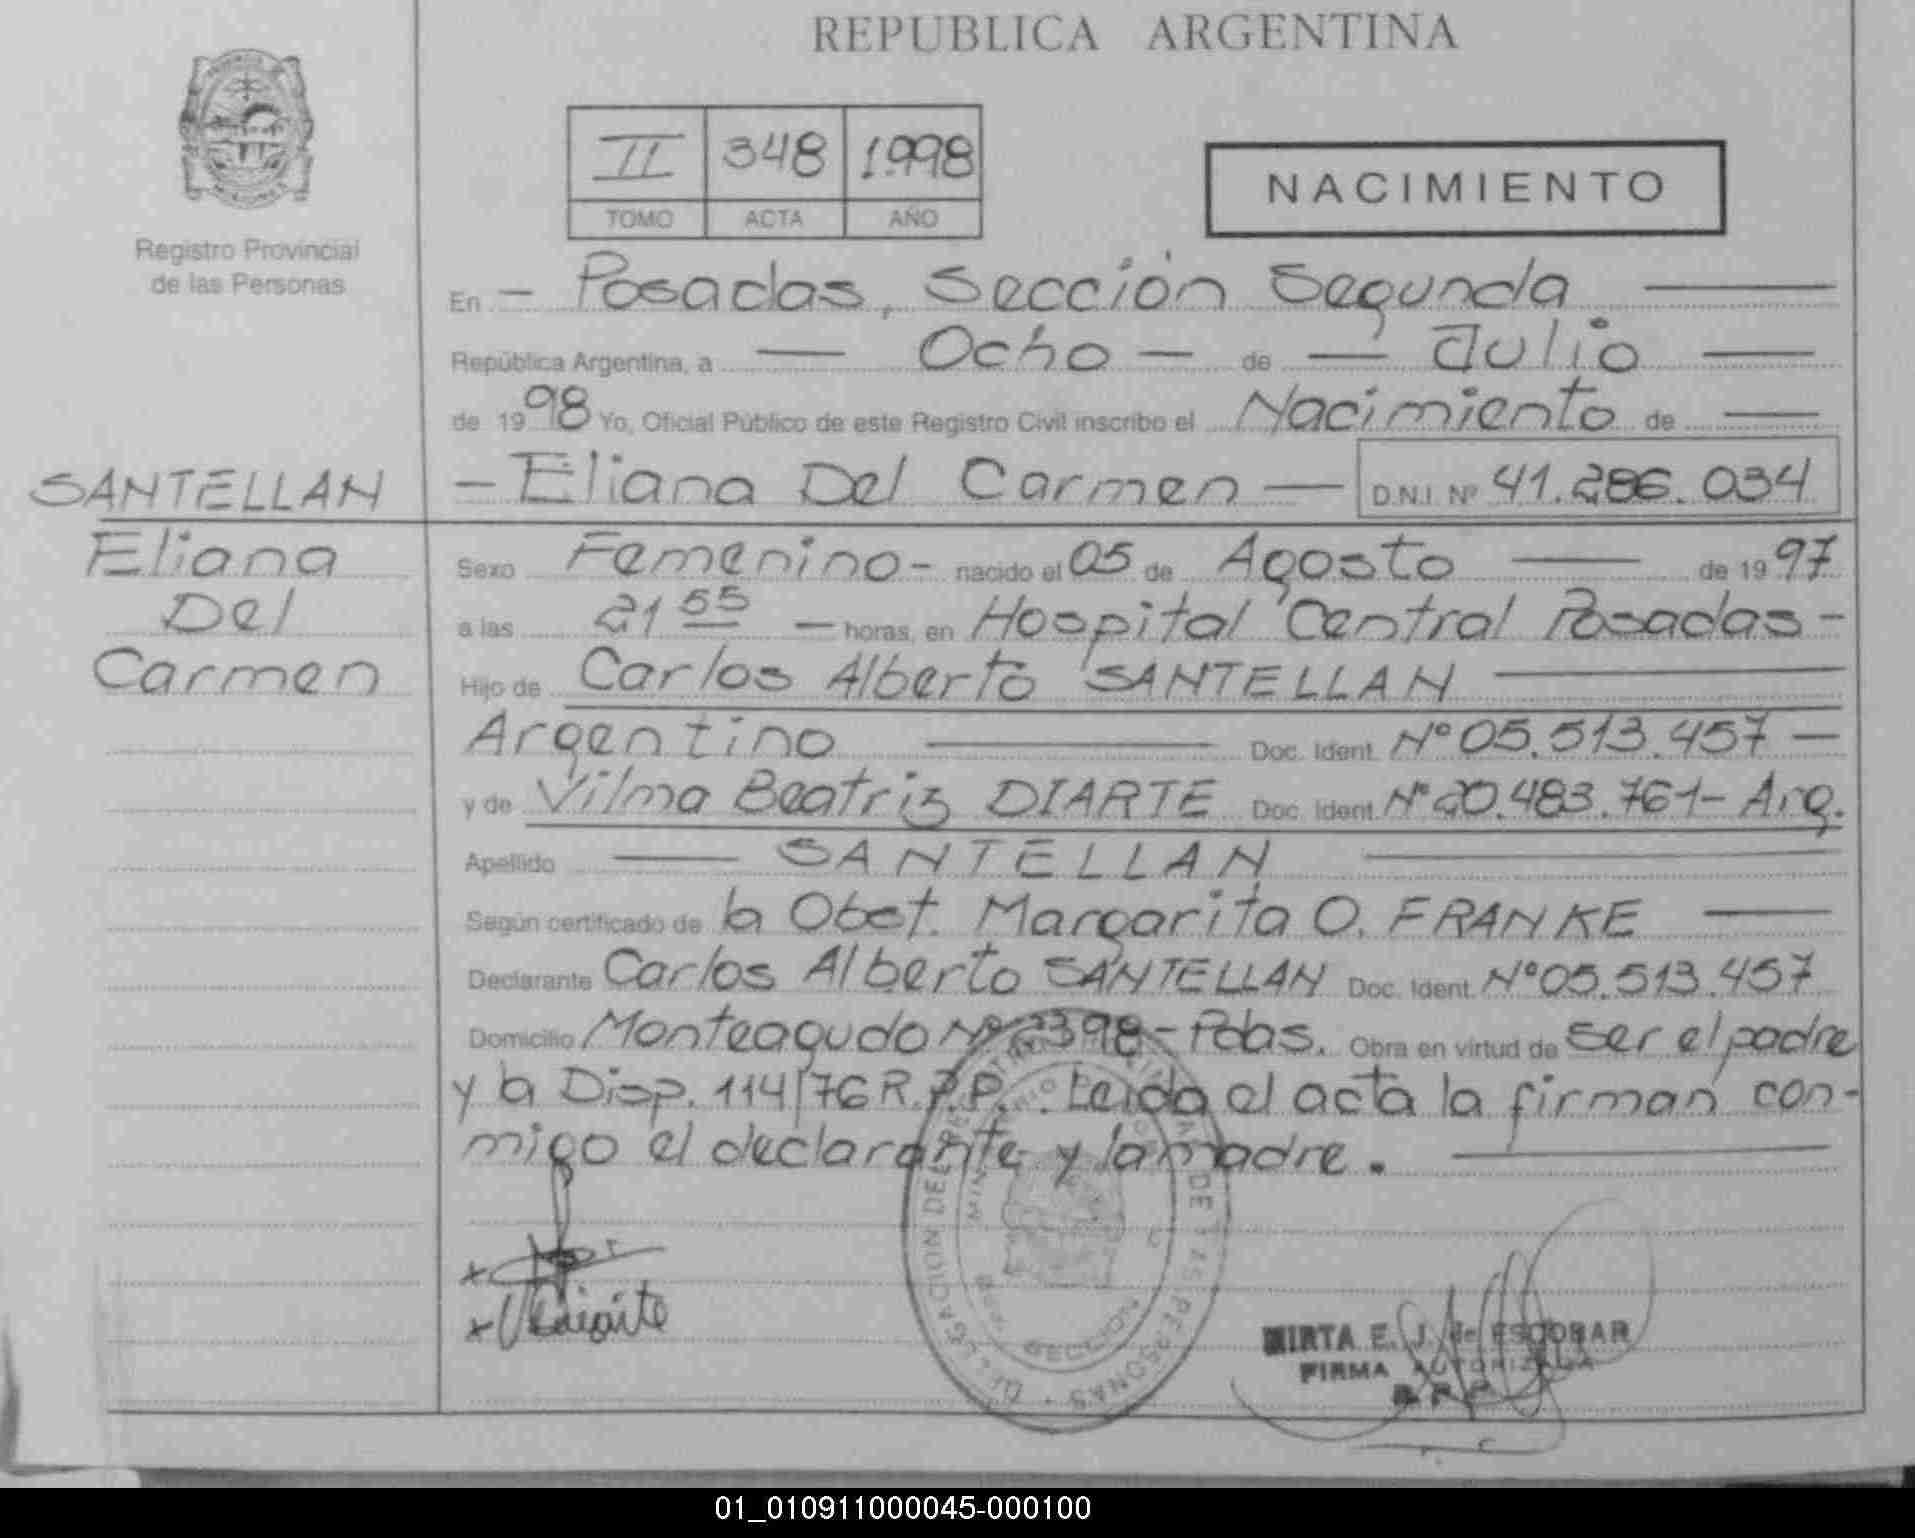 REPUBLICA ARGENTINA
II 348 1.998
TOMO ACTA AÑO
NACIMIENTO
Registro Provincial
de las Personas
En - Posadas, Sección Segunda
República Argentina, a Ocho de Julio
de 1998 Yo, Oficial Público de este Registro Civil inscribo el Nacimiento de
SANTELLAN
Eliana
Del
Carmen
- Eliana Del Carmen - D.N.I. Nº 41.286.034
Sexo Femenino - nacido el 05 de Agosto de 1997
a las 21 55 - horas, en Hospital Central Posadas -
Hijo de Carlos Alberto SANTELLAN
Argentino Doc. Ident. Nº 05.513.457 -
y de Vilma Beatriz DIARTE Doc. Ident. Nº 20.483.761 - Arg.
Apellido SANTELLAN
Según certificado de la Obst. Margarita O. FRANKE
Declarante Carlos Alberto SANTELLAN Doc. Ident. Nº 05.513.457
Domicilio Monteagudo Nº 2398 - Pdas. Obra en virtud de ser el padre
y la Disp. 114/76 R.P.P. Leída el acta la firman con-
migo el declarante y la madre.
DELEGACION DEL REGISTRO PROVINCIAL DE LAS PERSONAS
MIRTA E. J. de ESCOBAR
FIRMA AUTORIZADA
R.P.P.
01_010911000045-000100